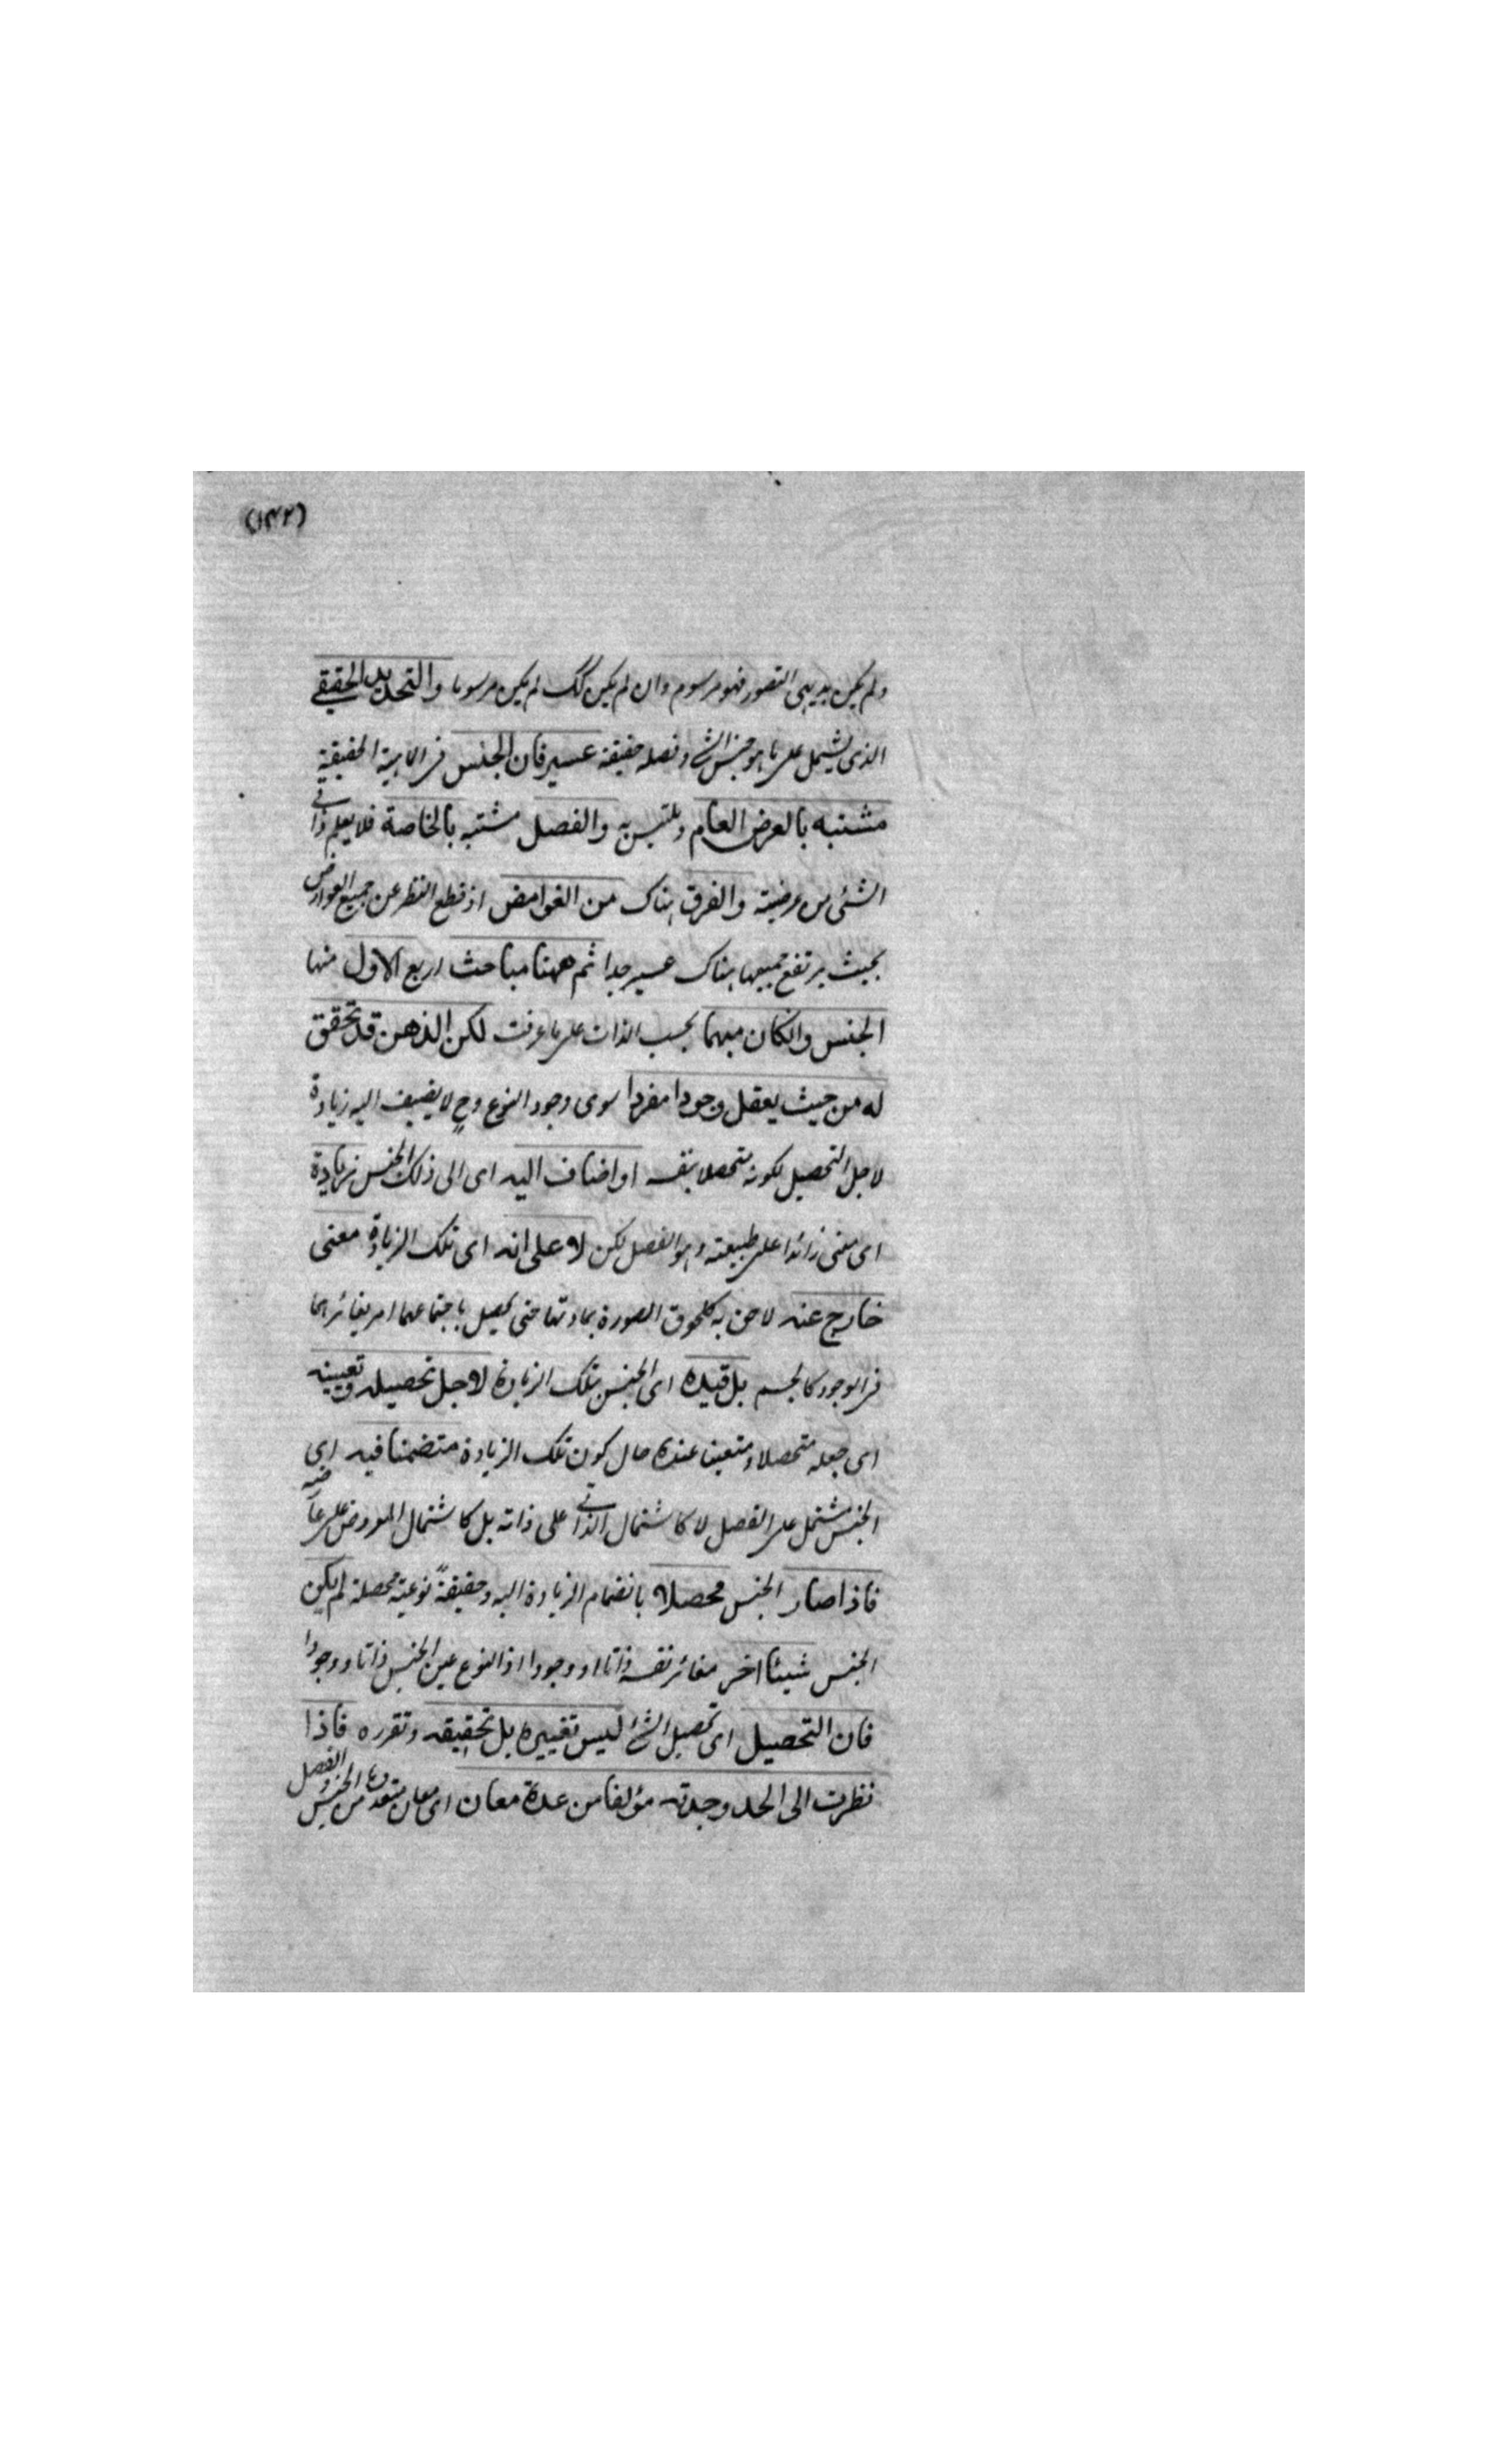 (١٤٢)
ولم يكن بديهى التصور فهو مرسوم وان لم يكن كك لم يكن مرسوما والتحديد الحقيقے
الذى يشمل على ما هو جنس الشے وفصله حقيقة عسير فان الجنس فى الماهية الحقيقية
مشتبه بالعرض العام وملتبس به والفصل مشتبه بالخاصة فلا يعلم ذاتى
الشئى من عرضيته والفرق هناك من الغوامض اذ قطع النظر عن جميع العوارض
بحيث يرتفع جميعها هناك عسير جدا ثم ههنا مباحث اربع الاول منها
الجنس وانكان مبهما بحسب الذات على ما عرفت لكن الذهن قد تحقق
له من حيث يعقل وجودا مفردا سوى وجود النوع وح لا يضيف اليه زيادة
لاجل التحصيل لكونه متحصلا بنفسه او اضاف اليه اى الى ذلك الجنس زيادة
اى معنى زائدا على طبيعته وهو الفصل لكن لا على انه اى تلك الزيادة معنى
خارج عنه لاحق به كلحوق الصورة بمادتها حتى يحصل باجتماعهما امر يغائرهما
فى الوجود كالجسم بل قيده اى الجنس بتلك الزيادة لاجل تحصيله وتعيينه
اى جعله متحصلا ومتعينا عنده حال كون تلك الزيادة متضمنا فيه اى
الجنس مشتمل على الفصل لا كاشتمال الذاتى على ذاته بل كاشتمال المعروض على عارضيه
فاذا صار الجنس محصلا بانضمام الزيادة اليه وحقيقةً نوعية محصلة لم يكن
الجنس شيئا اخر مغائر نفسه ذاتا او وجودا اذ النوع عين الجنس ذاتا ووجودا
فان التحصيل اى تحصيل الشئ ليس تغييره بل تحقيقه وتقرره فاذا
نظرت الى الحد وجدته مؤلفا من عدة معان اى معان متعددة من الجنس والفصل